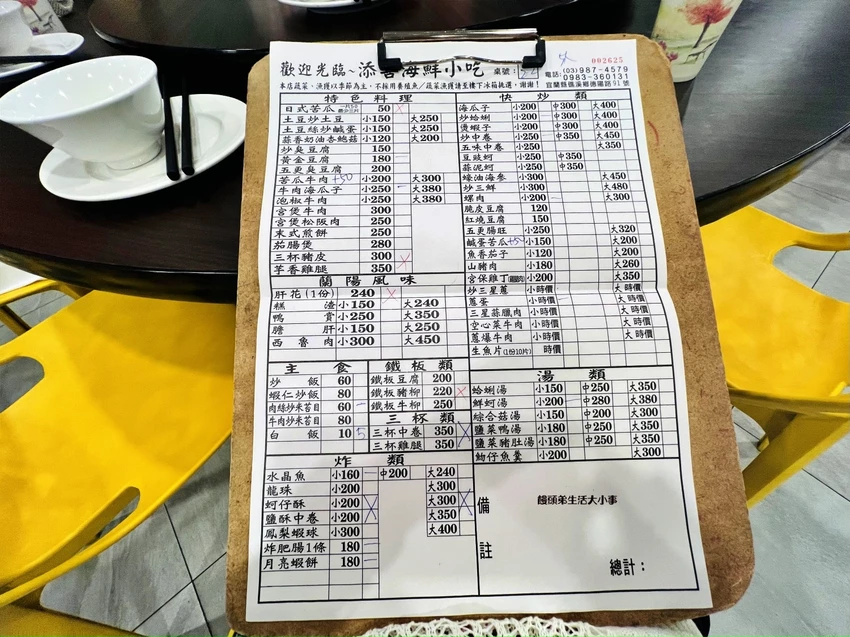 002625
歡迎光臨、添善海鮮小吃 桌號：
電話：(03)987-4579
0983-360131
宜蘭縣礁溪鄉德陽路91號
特色料理
日式苦瓜 50
土豆炒土豆 小150 大250
土豆絲炒鹹蛋 小150 大250
蒜香奶油杏鮑菇 小120 大200
炒臭豆腐 150
黃金豆腐 180
五更臭豆腐 200
苦瓜牛肉 +50 小200 大300
牛肉海瓜子 小250 大380
泡椒牛肉 小250 大380
宮保牛肉 300
宮保松阪肉 250
末式煎餅 250
茄腸煲 280
三杯豬皮 300
芋香雞腿 350
蘭陽風味
肝花(1份) 240
糕渣 小150 大240
鴨賞 小250 大350
膽肝 小150 大250
西魯肉 小300 大450
主食
炒飯 60
蝦仁炒飯 80
肉絲炒米苔目 60
牛肉炒米苔目 80
白飯 10 5
鐵板類
鐵板豆腐 200
鐵板豬柳 220
鐵板牛柳 250
三杯類
三杯中卷 350
三杯雞腿 350
炸類
水晶魚 小160 中200 大240
龍珠 小200 大300
蚵仔酥 小200 大300
鹽酥中卷 小200 大350
鳳梨蝦球 小300 大400
炸肥腸1條 180
月亮蝦餅 180
快炒類
海瓜子 小200 中300 大400
炒蛤蜊 小200 中300 大400
燙蝦子 小200 中300 大400
炒中卷 小250 中350 大450
五味中卷 小250 大350
豆豉蚵 小250 中350
蒜泥蚵 小250 中350
蠔油海參 小300 大450
炒三鮮 小300 大480
螺肉 小200 大300
脆皮豆腐 120
紅燒豆腐 150
五更腸旺 小250 大320
鹹蛋苦瓜 +50 小150 大200
魚香茄子 小120 大200
山豬肉 小180 大260
宮保雞丁 小200 大350
炒三星蔥 小時價 大時價
蔥蛋 小時價 大時價
三星蒜臘肉 小時價 大時價
空心菜牛肉 小時價 大時價
蔥爆牛肉 小時價 大時價
生魚片(1份10片) 時價
湯類
蛤蜊湯 小150 中250 大350
鮮蚵湯 小200 中280 大380
綜合菇湯 小150 中200 大300
鹽菜鴨湯 小180 中250 大350
鹽菜豬肚湯 小180 中250 大350
魩仔魚羹 小200 大300
備註
饅頭弟生活大小事
總計：